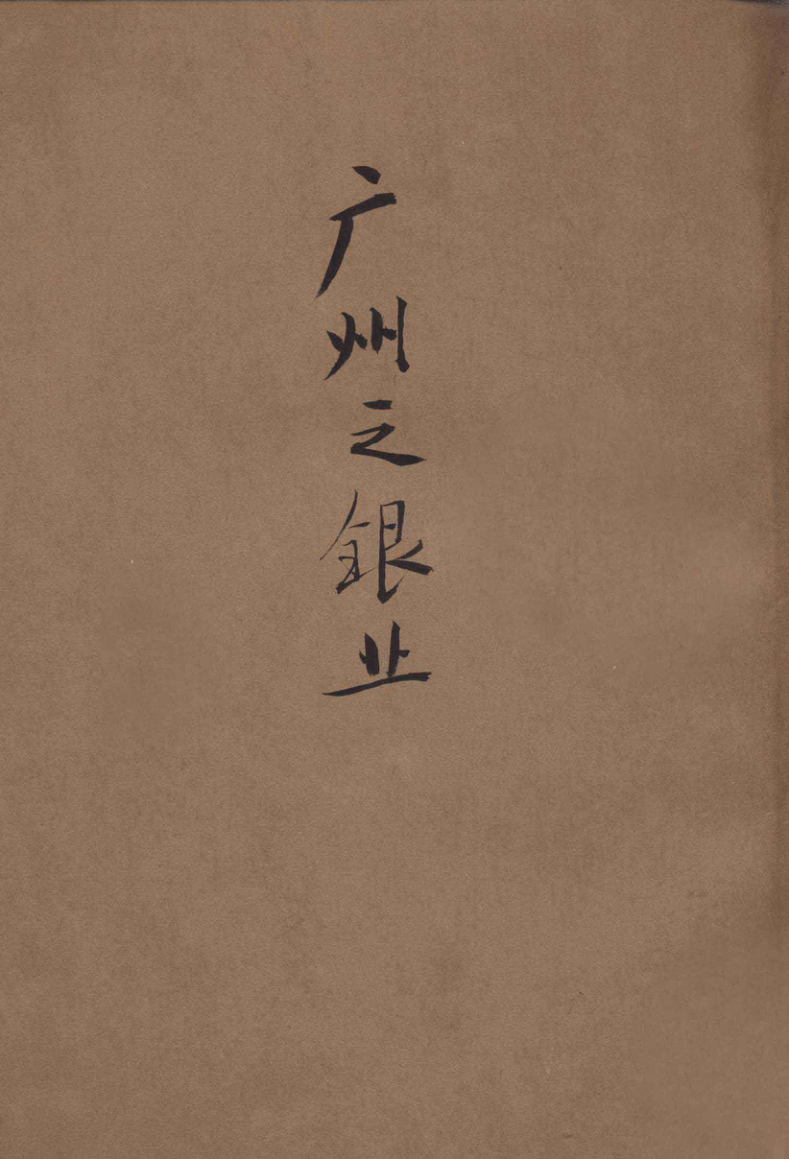 广州之銀业